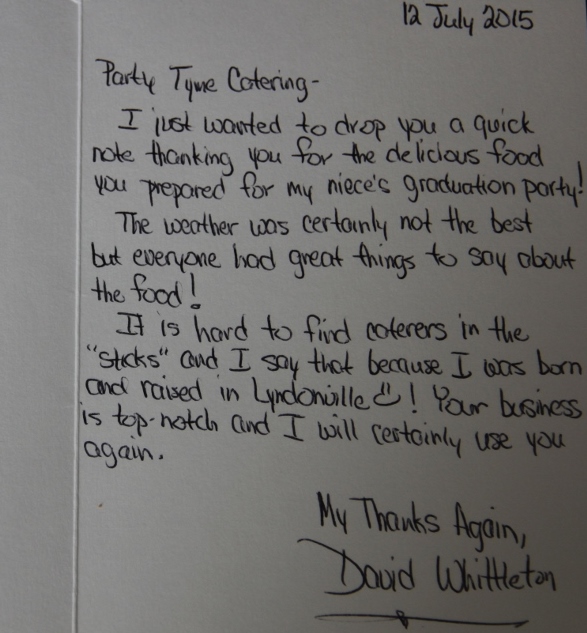 12 July 2015
Party Tyme Catering-
I just wanted to drop you a quick
note thanking you for the delicious food
you prepared for my niece's graduation party!
The weather was certainly not the best
but everyone had great things to say about
the food!
It is hard to find caterers in the
"sticks" and I say that because I was born
and raised in Lyndonville☺! Your business
is top-notch and I will certainly use you
again.
My Thanks Again,
David Whittleton